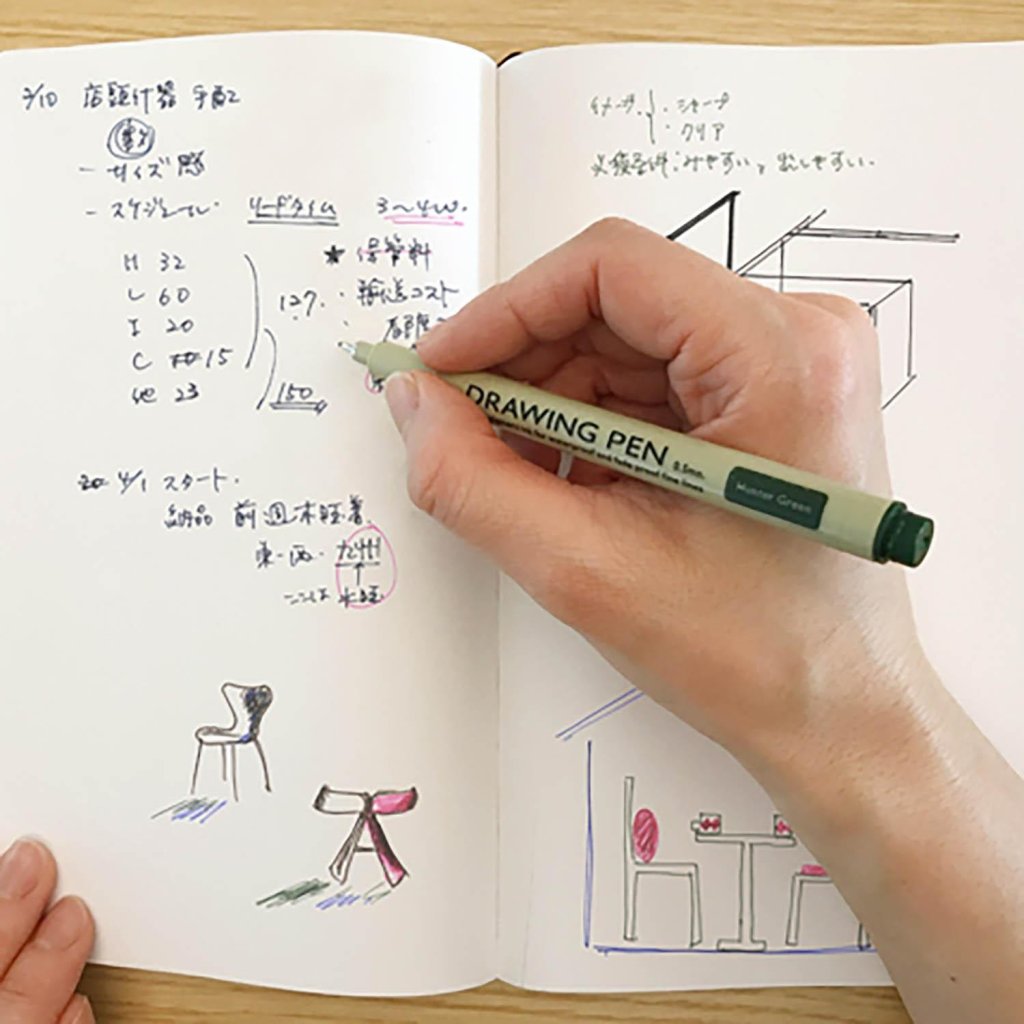 店頭什器 手配
数
- サイズ感
- スケジュール. リードタイム 3〜4w.
H 32
L 60
I 20
C 15
23
127.
150
★ 保管料
・輸送コスト
4/1 スタート.
納品 前週木曜着.
東一西. 九州
ここは 水曜
イメージ. ・シャープ
・クリア
必須条件:みやすい, 出しやすい.
DRAWING PEN 0.5mm.
Hunter Green